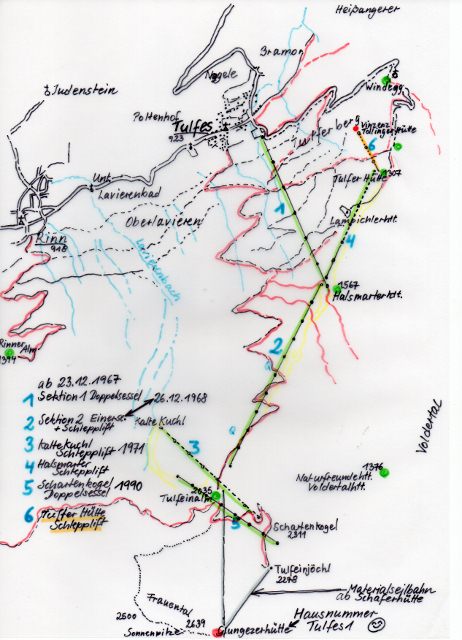 Heißangerer
Gramon
Nagele
Judenstein
Windegg
Poltenhof
Tulfes
923
Tulferberg
Vinzenz
Tollingerhütte
6
Unt.
Lavierenbad
Tulfer Hütte
1307
Oberlavieren
1
Lampichlerhtt
4
Rinn
918
Lavierenbach
1567
Halsmarterhtt.
Rinner Alm
1394
2
ab 23.12.1967
1 Sektion 1 Doppelsessel
26.12.1968
2 Sektion 2 Einerse.
+ Schlepplift
Kalte Kuchl
3 Kalte Kuchl
Schlepplift 1971
3
4 Halsmarter
Schlepplift
5 Schartenkogel 1990
Doppelsessel
6 Tulfer Hütte
Schlepplift
Voldertal
1376
Naturfreundehtt.
Voldertalhtt.
2035
Tulfeinalm
5
Schartenkogel
2311
Tulfeinjöchl
2278
Materialseilbahn
ab Schäferhütte
Frauental
2600
2639
Sonnenspitze
Glungezerhütte
Hausnummer
Tulfes 1